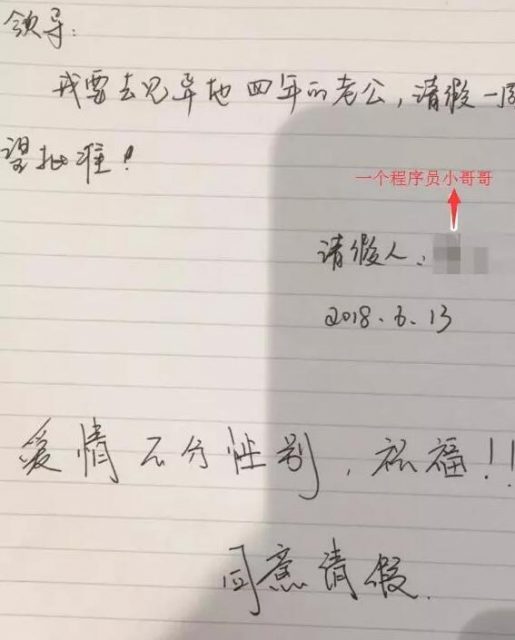 领导:
我要去见异地四年的老公,请假一周
望批准!
一个程序员小哥哥
请假人:
2018.6.13
爱情不分性别,祝福!!
同意请假.